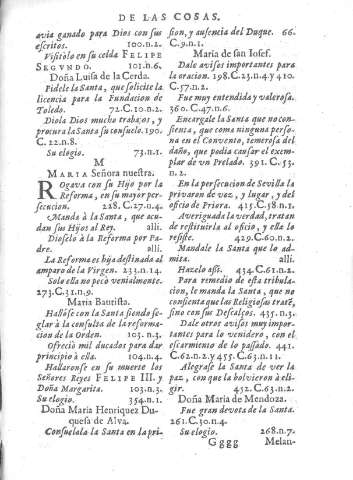 DE LAS COSAS.
avia ganado para Dios con sus
escritos. 100.n.2.
Visitòlo en su celda FELIPE
SEGVNDO. 101.n.6.
Doña Luisa de la Cerda.
Fidele la Santa, que solicite la
licencia para la Fundacion de
Toledo. 72.C.10.n.2.
Diola Dios mucho trabajos, y
procura la Santa su consuelo. 190.
C. 22.n.8.
Su elogio. 73.n.1.
M
MARIA Señora nuestra.
ROgava con su Hijo por la
Reforma, en su mayor per-
secucion. 228. C.27.n.4.
Manda à la Santa, que acu-
dan sus Hijos al Rey. alli.
Dioselo à la Reforma por Pa-
dre. alli.
La Reforma es hija destinada al
amparo de la Virgen. 233.n.14.
Solo ella no pecò venialmente.
273.C.31.n.9.
Maria Bautista.
Hallòse con la Santa siendo se-
glar à la consulta de la reforma-
cion de la Orden. 103.n.3.
Ofreciò mil ducados para dar
principio à ella. 104.n.4.
Hallaronse en su muerte los
Señores Reyes FELIPE III. y
Doña Margarita. 103.n.3.
Su elogio. 354.n.1.
Doña Maria Henriquez Du-
quesa de Alva.
Consuelala la Santa en la pri-
sion, y ausencia del Duque. 66.
C.9.n.1.
Maria de san Iosef.
Dale avisos importantes para
la oracion. 198.C.23.n.4.y 410.
C.57.n.2.
Fue muy entendida y valerosa.
360.C.47.n.6.
Encargale la Santa que no con-
sienta, que coma ninguna perso-
na en el Convento, temerosa del
daño, que podia causar el exem-
plar de vn Prelado. 391. C.53.
n.2.
En la persecucion de Sevilla la
privaron de voz, y lugar, y del
oficio de Priora. 415.C.58.n.1.
Averiguada la verdad, tratan
de restituirla al oficio, y ella lo
resiste. 429.C.60.n.2.
Mandale la Santa que lo ad-
mita. alli.
Hazelo assi. 434.C.61.n.2.
Para remedio de esta tribula-
cion, le manda la Santa, que no
consienta que las Religiosas tratẽ,
sino con sus Descalços. 435.n.3.
Dale otros avisos muy impor-
tantes para lo venidero, con el
escarmiento de lo passado. 441.
C.62.n.2.y 455. C.63.n.11.
Alegrase la Santa de ver la
paz, con que la bolvieron à ele-
gir. 452.C.63.n.2.
Doña Maria de Mendoza.
Fue gran devota de la Santa.
261.C.30.n.4.
Su elogio. 268.n.7.
G ggg Melan-